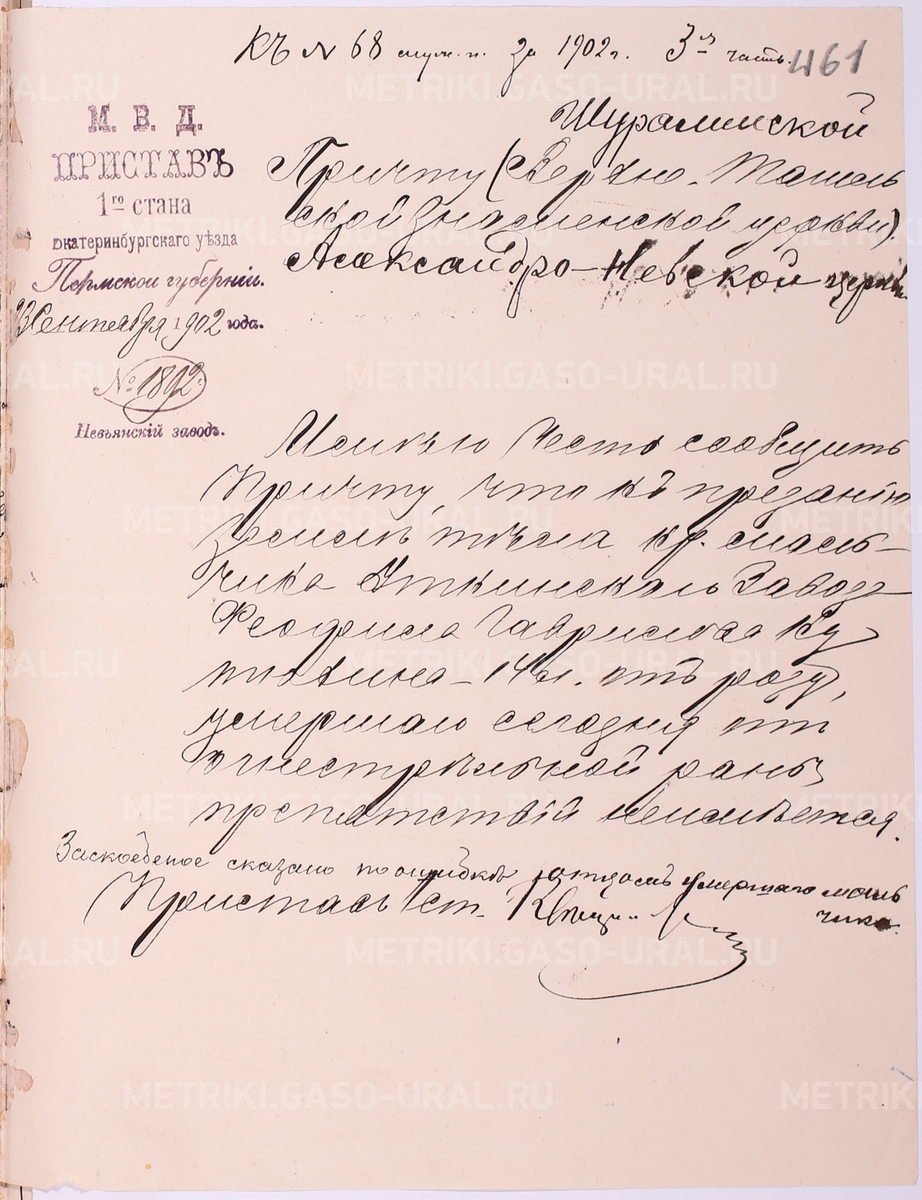 Къ № 68 за 1902 г. 3я часть.
461
М. В. Д.
ПРИСТАВЪ
1го стана
Екатеринбургскаго уѣзда
Пермской губерніи.
Сентября 1902 года.
№ 1892.
Невьянскій заводъ.
Шуралинской
Причту (Верхне-Тагиль
ской Знаменской церкви).
Александро-Невской церкви
Имѣю честь сообщить
Причту, что къ преданію
землѣ тѣла кр. маль-
чика Уткинскаго Завода
Феофила Гаврилова
14 л. отъ роду,
умершаго сегодня отъ
огнестрѣльной раны
препятствій неимѣется.
Заскобеное сказано по ошибкѣ умершаго маль
чика.
Приставъ 1 ст.
METRIKI.GASO-URAL.RU